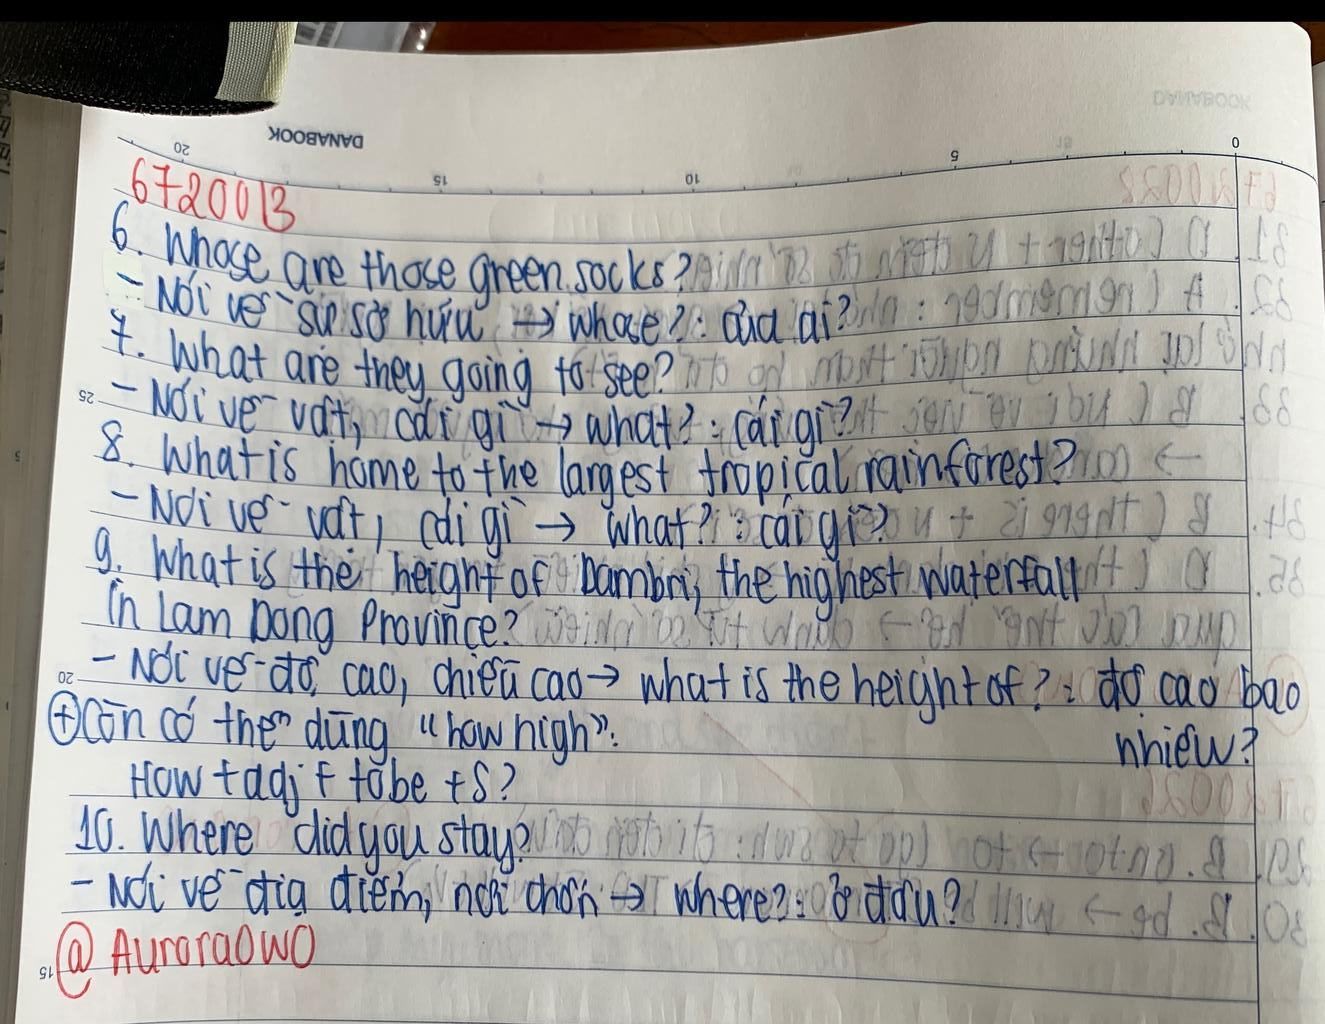 DANABOOK
0 5 10 15 20
6720013
6. Whose are those green socks?
- Nói về sự sở hữu → whose?: của ai?
7. What are they going to see?
- Nói về vật, cái gì → what?: cái gì?
25
8. What is home to the largest tropical rainforest?
- Nói về vật, cái gì → what?: cái gì?
9. What is the height of Dambri, the highest waterfall
in Lam Dong Province?
- Nói về độ cao, chiều cao → what is the height of?: độ cao bao
nhiêu?
20
+ Còn có thể dùng "how high":
How + adj + tobe + S?
10. Where did you stay?
- Nói về địa điểm, nơi chốn → where?: ở đâu?
@ Aurora0W0
15